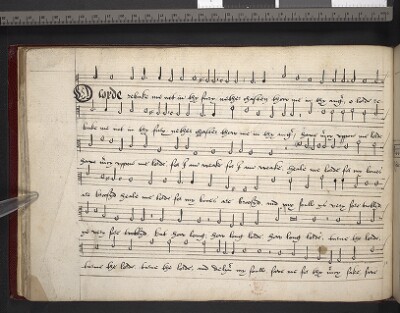 O lorde rebuke me not in thy fury nether chasten thow me in thy ang', o lorde re-
buke me not in thy fury nether chasten thow me in thy ang', have m'cy uppon me lorde
have m'cy uppon me lorde, for I am weake for I am weake, heale me lorde for my bones
are brooses heale me lorde for my bones are and my soule ys very sore trobled
ys very sore trobled but how long, how long lorde, how long lorde, turne the lorde,
turne the lorde, turne the lorde, and delyv' my soule save me for thy m'cy sake, save